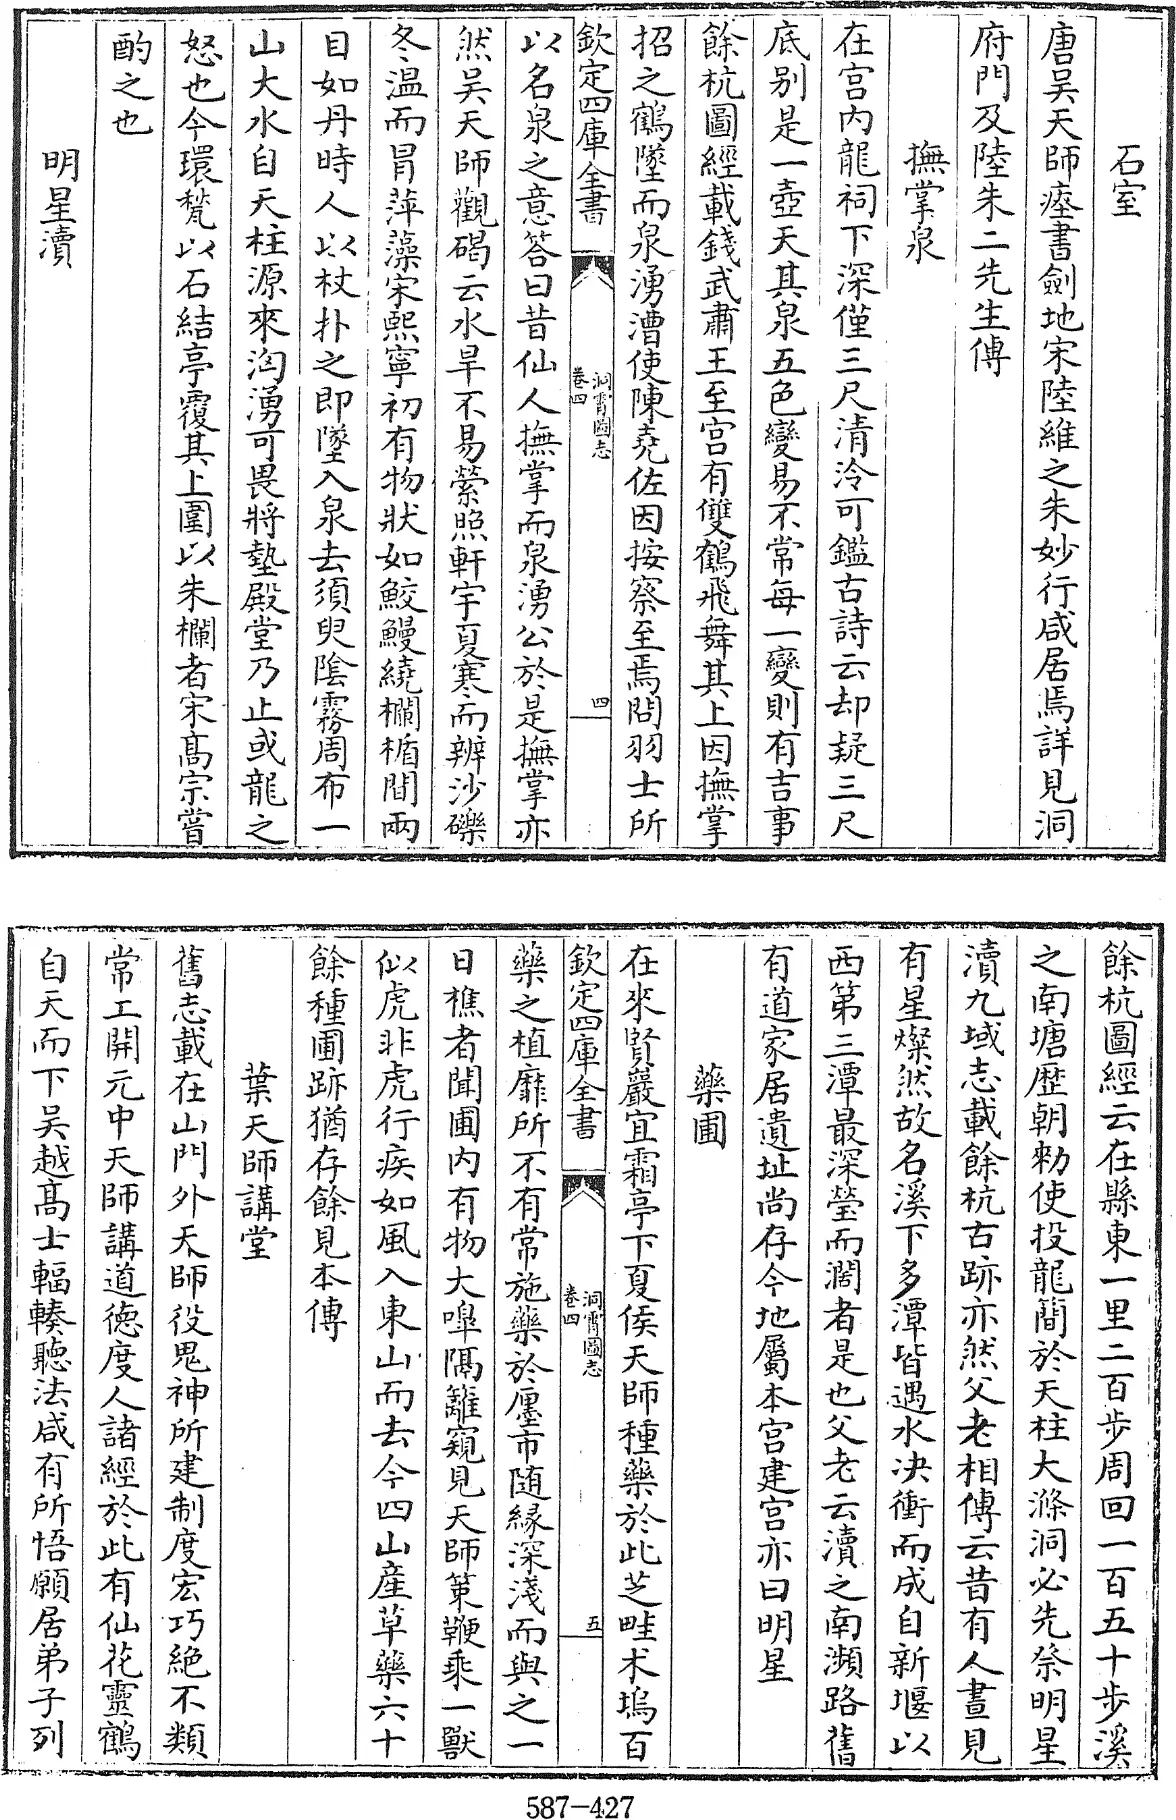 石室
唐吳天師瘞書劍地宋陸維之朱妙行咸居焉詳見洞
府門及陸朱二先生傳
撫掌泉
在宫内龍祠下深僅三尺清泠可鑑古詩云却疑三尺
底别是一壺天其泉五色變易不常每一變則有吉事
餘杭圖經載錢武肅王至宫有雙鶴飛舞其上因撫掌
招之鶴墜而泉湧漕使陳堯佐因按察至焉問羽士所
欽定四庫全書
洞霄圖志
卷四
四
以名泉之意答曰昔仙人撫掌而泉湧公於是撫掌亦
然吳天師觀碣云水旱不易縈照軒宇夏寒而辨沙礫
冬温而冐萍藻宋熙寧初有物狀如鮫鰻繞欄楯間兩
目如丹時人以杖扑之即墜入泉去須臾陰霧周布一
山大水自天柱源來洶湧可畏將墊殿堂乃止或龍之
怒也今環甃以石結亭覆其上圍以朱欄者宋髙宗嘗
酌之也
明星瀆
餘杭圖經云在縣東一里二百步周回一百五十步溪
之南塘歴朝勑使投龍簡於天柱大滌洞必先祭明星
瀆九域志載餘杭古跡亦然父老相傳云昔有人晝見
有星燦然故名溪下多潭皆遇水決衝而成自新堰以
西第三潭最深瑩而濶者是也父老云瀆之南瀕路舊
有道家居遺址尚存今地屬本宫建宫亦曰明星
藥圃
在來賢巖宜霜亭下夏侯天師種藥於此芝畦术塢百
欽定四庫全書
洞霄圖志
卷四
五
藥之植靡所不有常施藥於㕓市随緣深淺而與之一
日樵者聞圃内有物大嘷隔籬窺見天師䇿鞭乘一獸
似虎非虎行疾如風入東山而去今四山産草藥六十
餘種圃跡猶存餘見本傳
葉天師講堂
舊志載在山門外天師役鬼神所建制度宏巧絶不類
常工開元中天師講道德度人諸經於此有仙花靈鶴
自天而下吳越髙士輻輳聽法咸有所悟願居弟子列
587-427